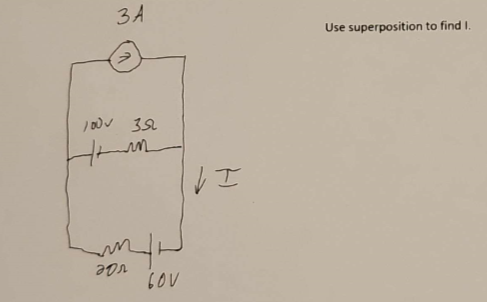 3A
Use superposition to find I.
100V 3Ω
I
20Ω
60V